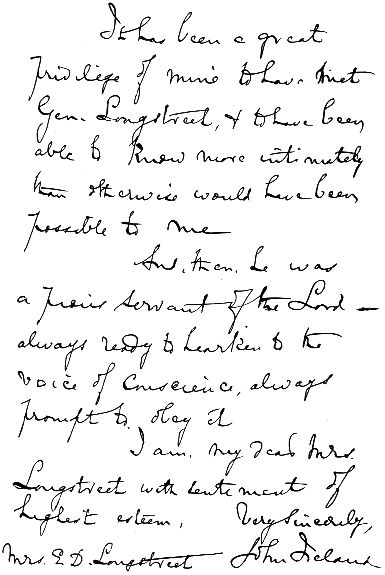 It has been a great
privilege of mine to have met
Gen. Longstreet, & to have been
able to know more intimately
than otherwise would have been
possible to me
And, then, he was
a pious servant of the Lord —
always ready to hearken to the
voice of conscience, always
prompt to obey it
I am, my dear Mrs.
Longstreet with sentiment of
highest esteem, Very sincerely,
Mrs. E. D. Longstreet John Ireland